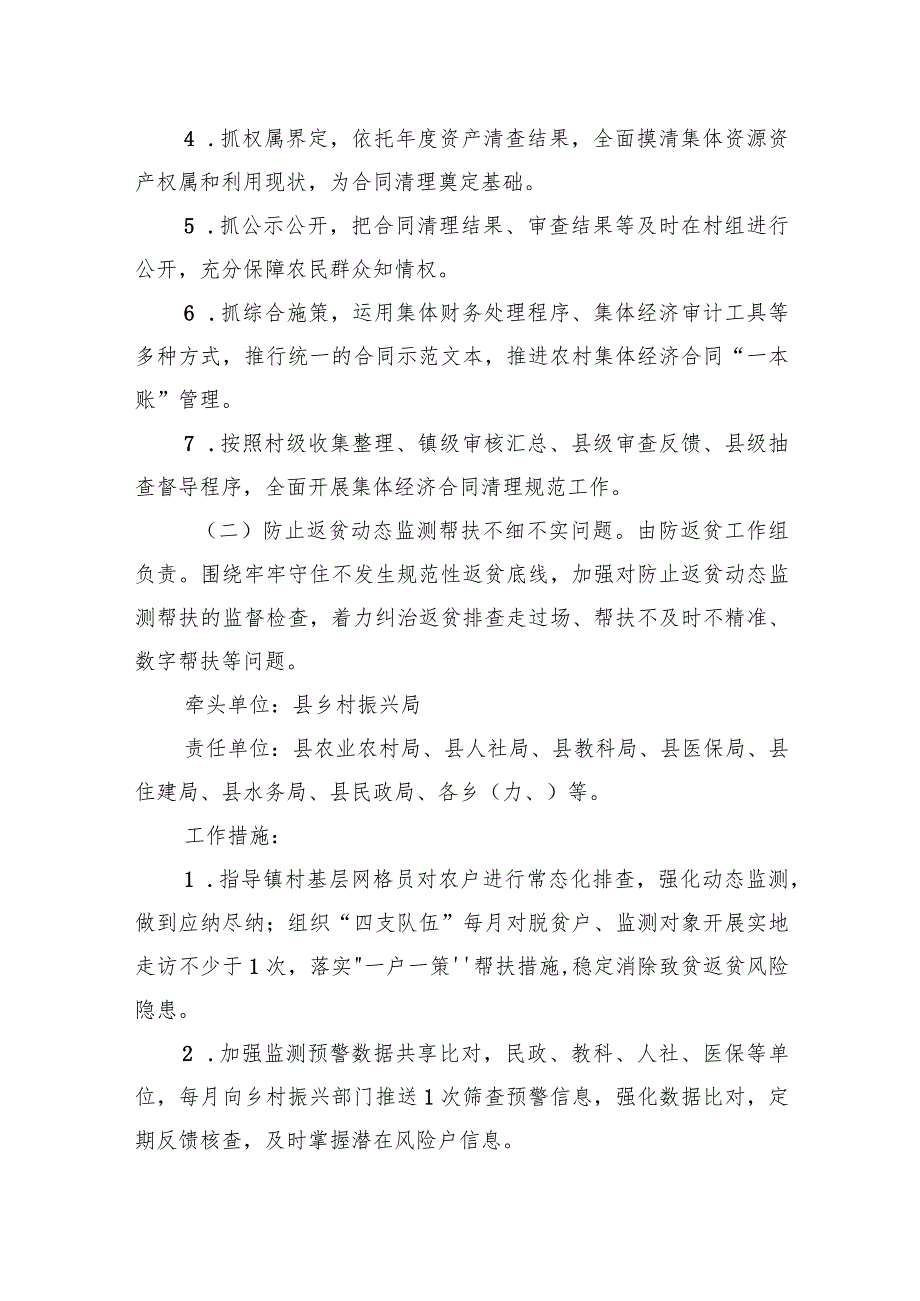 4 .抓权属界定，依托年度资产清查结果，全面摸清集体资源资
产权属和利用现状，为合同清理奠定基础。
5 .抓公示公开，把合同清理结果、审查结果等及时在村组进行
公开，充分保障农民群众知情权。
6 .抓综合施策，运用集体财务处理程序、集体经济审计工具等
多种方式，推行统一的合同示范文本，推进农村集体经济合同“一本
账”管理。
7 .按照村级收集整理、镇级审核汇总、县级审查反馈、县级抽
查督导程序，全面开展集体经济合同清理规范工作。
（二）防止返贫动态监测帮扶不细不实问题。由防返贫工作组
负责。围绕牢牢守住不发生规范性返贫底线，加强对防止返贫动态监
测帮扶的监督检查，着力纠治返贫排查走过场、帮扶不及时不精准、
数字帮扶等问题。
牵头单位：县乡村振兴局
责任单位：县农业农村局、县人社局、县教科局、县医保局、县
住建局、县水务局、县民政局、各乡（力、）等。
工作措施：
1 .指导镇村基层网格员对农户进行常态化排查，强化动态监测，
做到应纳尽纳；组织“四支队伍”每月对脱贫户、监测对象开展实地
走访不少于1次，落实"一户一策''帮扶措施,稳定消除致贫返贫风险
隐患。
2 .加强监测预警数据共享比对，民政、教科、人社、医保等单
位，每月向乡村振兴部门推送1次筛查预警信息，强化数据比对，定
期反馈核查，及时掌握潜在风险户信息。